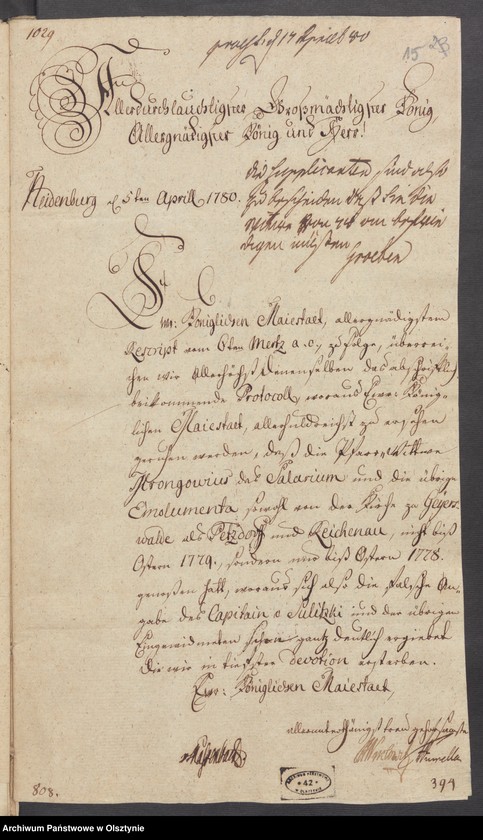 1029
praes. d. 17 Aprill 80
15
An
Allerdurchlauchtigster Großmächtigster König,
Allergnädigster König und Herr!
die Supplicanten sind also
zu bescheiden daß Sie die
Neidenburg d. 5ten Aprill 1780.
müßten
Groeben
Ewr: Königlichen Maiestaet, allergnädigstem
Rescript vom 6ten Mertz a. c. zufolge, überrei-
chen wir Allerhöchst Denenselben das abschriftlich
beikommende Protocoll, woraus Ewr: König-
lichen Maiestaet, allerhuldreichst zu ersehen
geruhen werden, daß die Pfarr-Wittwe
Mrongowius das Salarium und die übrige
Emolumenta sowohl von der Kirche zu Geyers-
walde als Petzdorf und Reichenau, nicht biß
Ostern 1779., sondern nur biß Ostern 1778.
genoßen hatt, woraus sich also die falsche An-
gabe des Capitain v. Sulitzki und der übrigen
Eingewidmeten gantz deutlich ergiebet
Die wir in tiefster devotion ersterben.
Ewr: Königlichen Maiestaet,
allerunterthänigst treu gehorsamste
808.
ARCHIWUM PAŃSTWOWE
* 42 *
W OLSZTYNIE
394
Archiwum Państwowe w Olsztynie